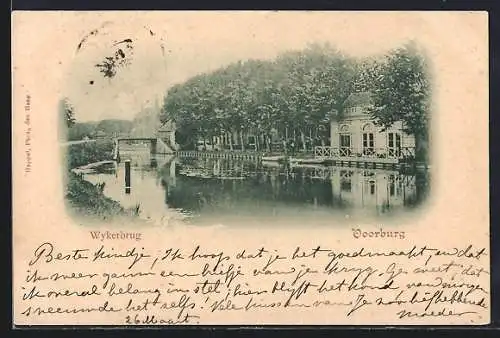 Happel, Phot. den Haag
Wykerbrug
Voorburg
Beste kindje, Ik hoop dat je het goedmaakt, en dat
ik weer gauw een brifje van je kryg. Je weet dat
ik overal belang in stel; hier blyft het koud van morgen
sneeuwde het zelfs! Vele kussen van Je zoo liefhebbende
26 Maart
moeder